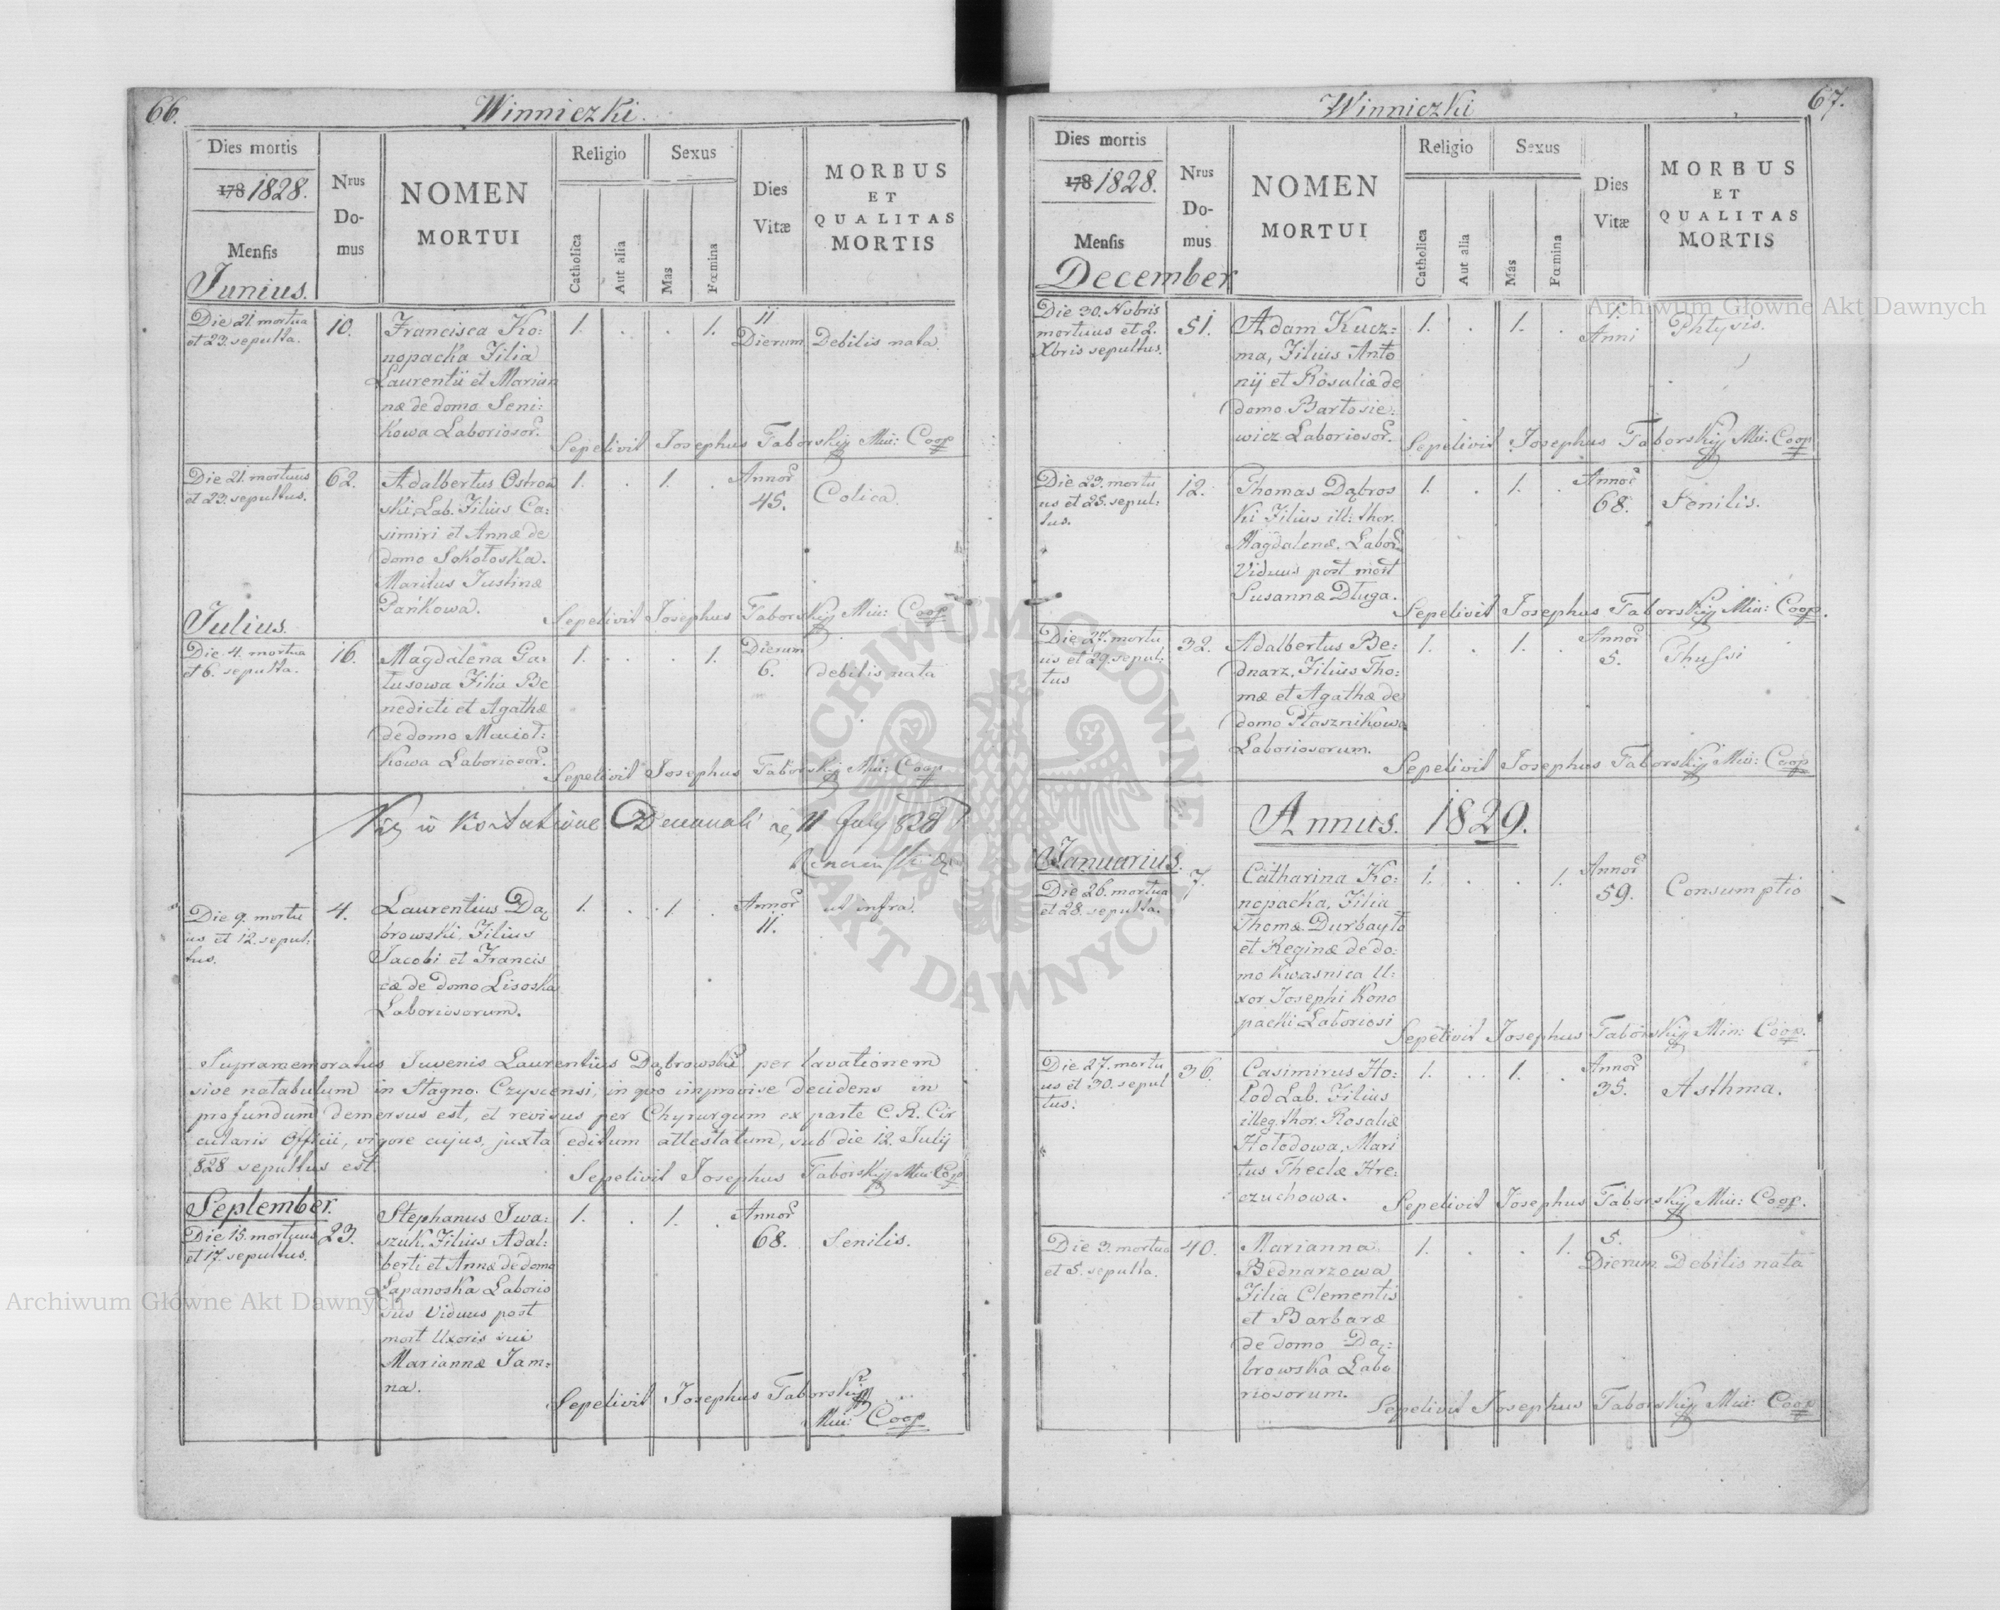 66.
Winniczki.
Dies mortis
178 1828.
Mensis
Junius.
Nrus
Do-
mus
NOMEN
MORTUI
Religio
Catholica
Aut alia
Sexus
Mas
Fœmina
Dies
Vitæ
MORBUS
ET
QUALITAS
MORTIS
Die 21. mortua
et 23. sepulta.
10.
Francisca Ko:
nopacka Filia
Laurentii et Marian
næ de domo Seni:
kowa Laboriosor.
1. . . 1.
11
Dierum
Debilis nata.
Sepelivit Josephus Taborskij Min: Coop
Die 21. mortuus
et 23. sepultus.
62.
Adalbertus Ostrow
ski, Lab. Filius Ca:
simiri et Annæ de
domo Sokołoska.
Maritus Justinæ
Pańkowa.
1. . 1. .
Annor
45.
Colica
Sepelivit Josephus Taborskij Min: Coop
Julius.
Die 4. mortua
et 6. sepulta.
16.
Magdalena Ga:
tusowa Filia Be
nedicti et Agathæ
de domo Macioł:
kowa Laboriosor.
1. . . 1.
Dierum
6.
debilis nata
Sepelivit Josephus Taborskij Min: Coop
Decanali 11 July 828
Die 9. mortu
us et 12. sepul:
tus.
4.
Laurentius Dą
browski, Filius
Jacobi et Francis
cæ de domo Lisoska
Laboriosorum.
1. . 1. .
Annor
11.
ut infra.
Supramemoratus Juvenis Laurentius Dąbrowski per lavationem
sive natabulum in Stagno Czyscensi, in quo improvise decidens in
profundum demersus est, et revisus per Chyrurgum ex parte C. R. Cir
cularis Officii, vigore cujus, juxta editum attestatum, sub die 12. July
828 sepultus est.
Sepelivit Josephus Taborskij Min: Coop
September.
Die 15. mortuus
et 17. sepultus.
23.
Stephanus Iwa:
szuk. Filius Adal:
berti et Annæ de domo
Łapanoska Laborio
sus Viduus post
mort Uxoris sui
Mariannæ Jam:
na.
1. . 1. .
Annor
68.
Senilis.
Sepelivit Josephus Taborskij
Min: Coop
67.
Winniczki
Dies mortis
178 1828.
Mensis
December
Nrus
Do-
mus
NOMEN
MORTUI
Religio
Catholica
Aut alia
Sexus
Mas
Fœmina
Dies
Vitæ
MORBUS
ET
QUALITAS
MORTIS
Die 30. Nobris
mortuus et 2.
Xbris sepultus.
51.
Adam Kucz:
ma, Filius Anto
nij et Rosaliæ de
domo Bartosie:
wicz Laboriosor.
1. . 1. .
1.
Anni
Phtysis.
Sepelivit Josephus Taborskij Min. Coop
Die 23. mortu
us et 25. sepul:
tus.
12.
Thomas Dąbros
ki Filius ill: thor.
Magdalenæ. Labor.
Viduus post mort
Susannæ Długa.
1. . 1. .
Annor
68.
Senilis.
Sepelivit Josephus Taborskij Min: Coop.
Die 27. mortu
us et 29. sepul:
tus
32.
Adalbertus Be:
dnarz. Filius Tho:
mæ et Agathæ de
domo Ptasznikowa
Laboriosorum.
1. . 1. .
Annor
5.
Thussi
Sepelivit Josephus Taborskij Min: Coop
Annus. 1829.
Januarius.
Die 26. mortua
et 28. sepulta.
7.
Catharina Ko:
nopacka, Filia
Thomæ Durbayło
et Reginæ de do:
mo Kwasnica U:
xor Josephi Kono
packi Laboriosi
1. . . 1.
Annor
59.
Consumptio
Sepelivit Josephus Taborskij Min: Coop.
Die 27. mortu
us et 30. sepul
tus.
36.
Casimirus Ho:
łod Lab. Filius
illeg. thor. Rosaliæ
Hołodowa, Mari
tus Theclæ Hre:
czuchowa.
1. . 1. .
Annor
35.
Asthma.
Sepelivit Josephus Taborskij Min: Coop.
Die 3. mortua
et 5. sepulta.
40.
Marianna
Bednarzowa
Filia Clementis
et Barbaræ
de domo Dą:
browska Labo
riosorum.
1. . . 1.
5.
Dierum
Debilis nata
Sepelivit Josephus Taborskij Min: Coop
Archiwum Główne Akt Dawnych
Archiwum Główne Akt Dawnych
ARCHIWUM GŁÓWNE AKT DAWNYCH